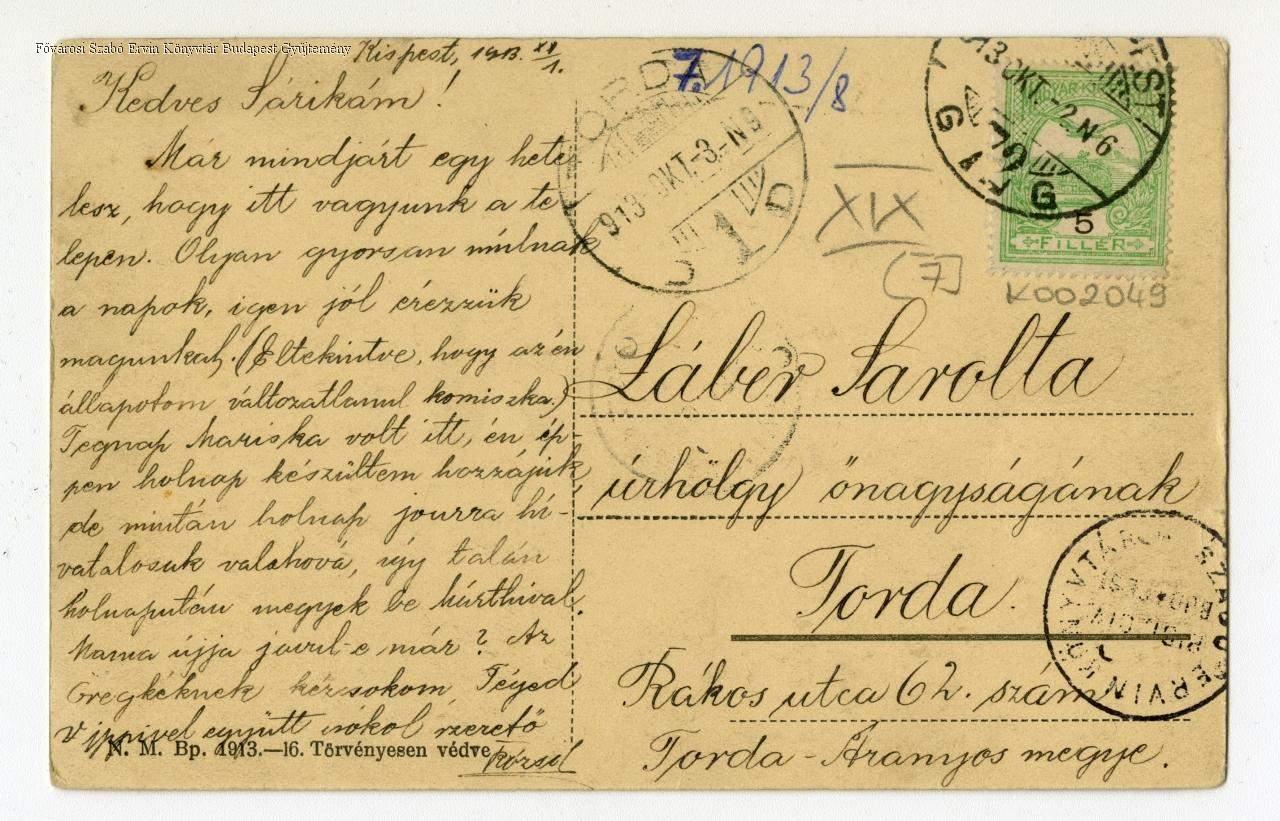 Fővárosi Szabó Ervin Könyvtár Budapest Gyűjtemény
Kispest, 1913. XI/1.
Kedves Sárikám!
Már mindjárt egy hete
lesz, hogy itt vagyunk a te-
lepen. Olyan gyorsan múlnak
a napok, igen jól érezzük
magunkat. (Eltekintve, hogy az én
állapotom változatlanul komiszka.)
Tegnap Mariska volt itt, én ép-
pen holnap készültem hozzájuk,
de miután holnap jourra hi-
vatalosuk valahová, úgy talán
holnapután megyek be Mürthival.
Mama újja javul-e már? Az
Öregkéknek kézcsokom Téged
együtt csókol szerető
Rózsid
N. M. Bp. 1913.—16. Törvényesen védve
7. 1913/8
TORDA
913 OKT.-3.-N9
1
D
XIX
[7]
913 OKT.-2.N6
70
G
MAGYAR KIR.
5
FILLÉR
K002049
Láber Sarolta
úrhölgy őnagyságának
Torda.
Rákos utca 62. szám
Torda-Aranyos megye.
SZABÓ ERVIN KÖNYVTÁR
BUDAPEST